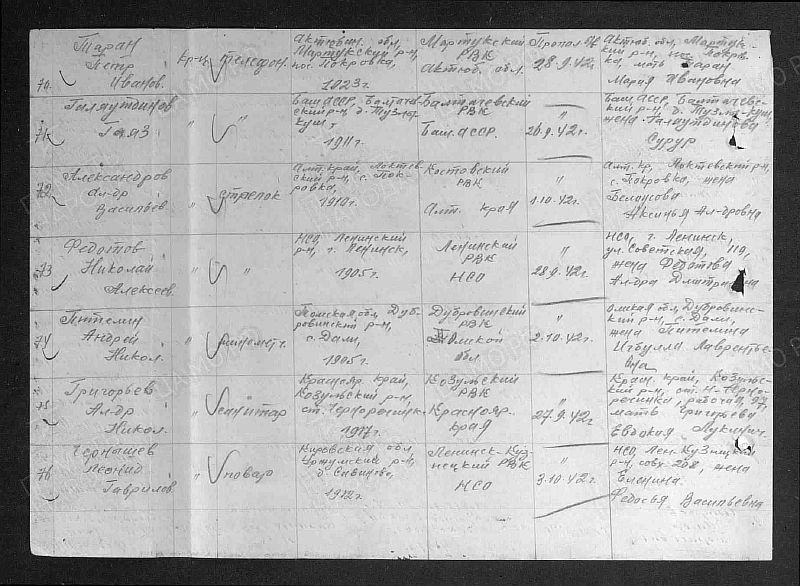 70. Таран Петр Иванов. кр-ц телефон. Актюбин. обл, Мартукский р-н, пос. Покровка, 1923г. Мартукский РВК Актюб. обл. Пропал б/в 28.9.42г. Актюб. обл, Мартукский р-н, пос. Покровка, мать Таран Мария Ивановна
71. Галяутдинов Гаяз " " Баш АССР, Балтачевский р-н, 1911г. Балтачевский РВК Баш. АССР. " 26.9.42г. Баш. АССР Балтачевский р-н, жена Галяутдинова Сурур
72 Александров Ал-др Васильев " стрелок Алт. край, Локтевский р-н, с. Покровка, 1910г. РВК Алт. края " 1.10.42г. Алт. кр, Локтевский р-н, с. Покровка, жена Белоусова Аксинья Ал-дровна
73 Федотов Николай Алексеев. " " НСО, Ленинский р-н, г. Ленинск, 1905г. Ленинский РВК НСО " 28.9.42г. НСО, г. Ленинск, ул. Советская, 119, жена Федотова Ал-дра Дмитриевна
74 Пителин Андрей Никол. " минометч. Томская обл, Дубровинский р-н, с. Дали, 1905г. Дубровинский РВК Томской обл. " 2.10.42г. Омская обл, Дубровинский р-н, с. Дали, жена Пителина Лаврентьевна
75 Григорьев Ал-др Никол. " санитар Краснояр. край, Козульский р-н, 1917г. Козульский РВК Краснояр. края " 27.9.42г Красн. край, Козульский р-н, рабочая, мать Григорьева Евдокия
76 Чернашев Леонид Гаврилов. " повар Кировская обл, Уржумский р-н, 1912г. Ленинск-Кузнецкий РВК НСО " 3.10.42г. НСО, Лен. Кузнецкий р-н, жена Еленина Федосья Васильевна